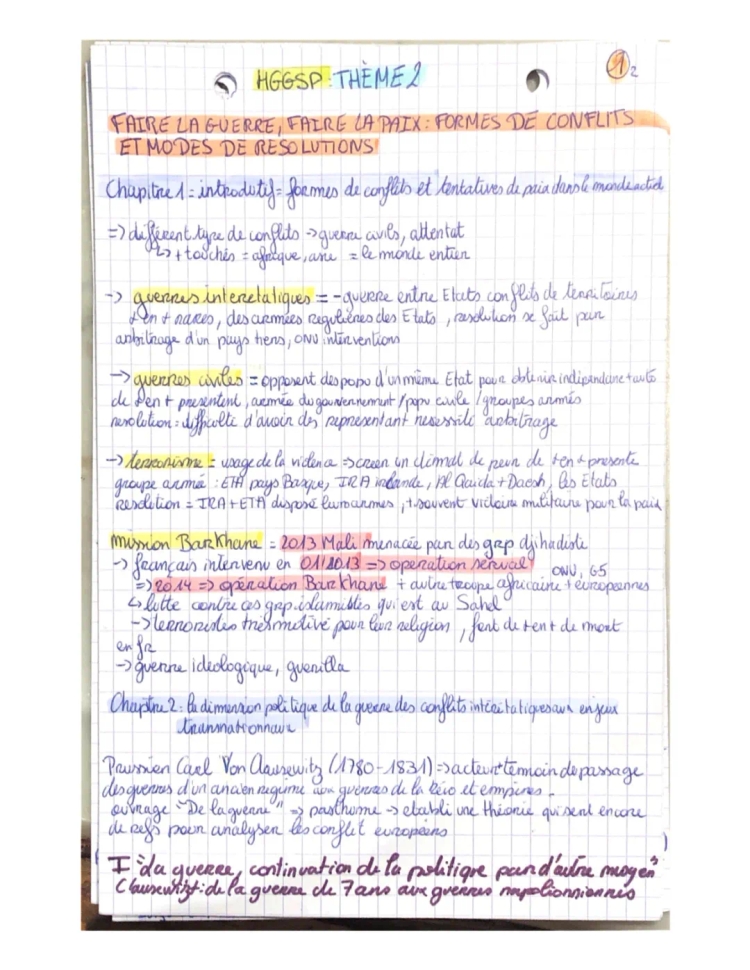 HGGSP: THÈME 2
1 2
FAIRE LA GUERRE, FAIRE LA PAIX: FORMES DE CONFLITS
ET MODES DE RESOLUTIONS
Chapitre 1: introdutif= formes de conflits et tentatives de paix dans le monde actuel
=> différent type de conflits -> guerre civils, attentat
↳ + touchés = afrique, asie = le monde entier
-> guerres interetatiques = - guerre entre Etats conflits de territoires
de + en + rares, des armées regulières des Etats, resolution se fait par
arbitrage d'un pays tiers, ONU interventions
-> guerres civiles = opposent des popo d'un même Etat pour obtenir indépendance + auto
de + en + presentent, armée du gouvernement / popu civile / groupes armés
resolution: difficulté d'avoir des representant necessité arbitrage
-> terrorisme = usage de la violence => creer un climat de peur de + en + presente
groupe armée: ETA pays Basque, IRA irlande, Al Qaida + Daesh, les Etats
Resolution = IRA + ETA disposé leurs armes, + souvent victoire militaire pour la paix
mission Barkhane = 2013 Mali menacée par des grp djihadiste
-> français intervenu en 01/2013 => operation serval
ONU, G5
=> 2014 => opération Barkhane + autre troupe africaine + européennes
↳ lutte contre ces grp islamistes qui est au Sahel
-> terroristes très motivé pour leur religion, font de + en + de mort
en fr
-> guerre ideologique, guerilla
Chapitre 2: la dimension politique de la guerre des conflits interetatiques aux enjeux
transnationnaux
Prussien Carl Von Clausewitz (1780-1831) => acteur + témoin de passage
des guerres d'un ancien regime aux guerres de la révo et empires.
ouvrage "De la guerre" => posthume -> etabli une théorie qui sert encore
de refs pour analyser les conflit européens
I "La guerre, continuation de la politique par d'autre moyen"
Clausewitz: de la guerre de 7 ans aux guerres napoléonniennes